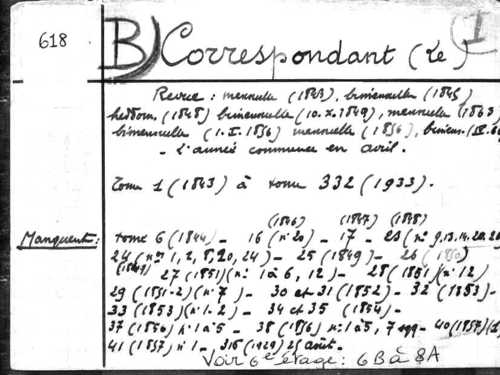 618
B) Correspondant (Le) I
Revue : mensuelle (1843), bimensuelle (1845)
hebdom. (1848) bimensuelle (10.X.1849), mensuelle (1863)
bimensuelle (1.X.1856) mensuelle (1856), bimens.
- L'année commence en avril.
Tome 1 (1843) à tome 332 (1933).
(1846) (1847) (1848)
Manquent : tome 6 (1844) - 16 (n°20) - 17 - 23 (n° 9,13.14.20.
24 (n°s 1, 2, 8, 20, 24) - 25 (1849) - 26 (1850)
(1849) 27 (1851) (n° 1 à 6, 12) - 28 (1851) (n° 12)
29 (1851-2) (n° 7) - 30 et 31 (1852) - 32 (1853) -
33 (1853) (n° 1-2) - 34 et 35 (1854) -
37 (1856) n° 1 à 5 - 38 (1856) n° 1 à 5, 7 - 40 (1857)
41 (1857) n° 1 - 316 (1929) 25 août -
Voir 6e étage : 6B à 8A